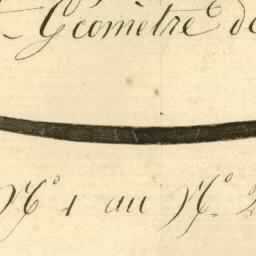 Géomètre de
N.º 1 au N.º 2